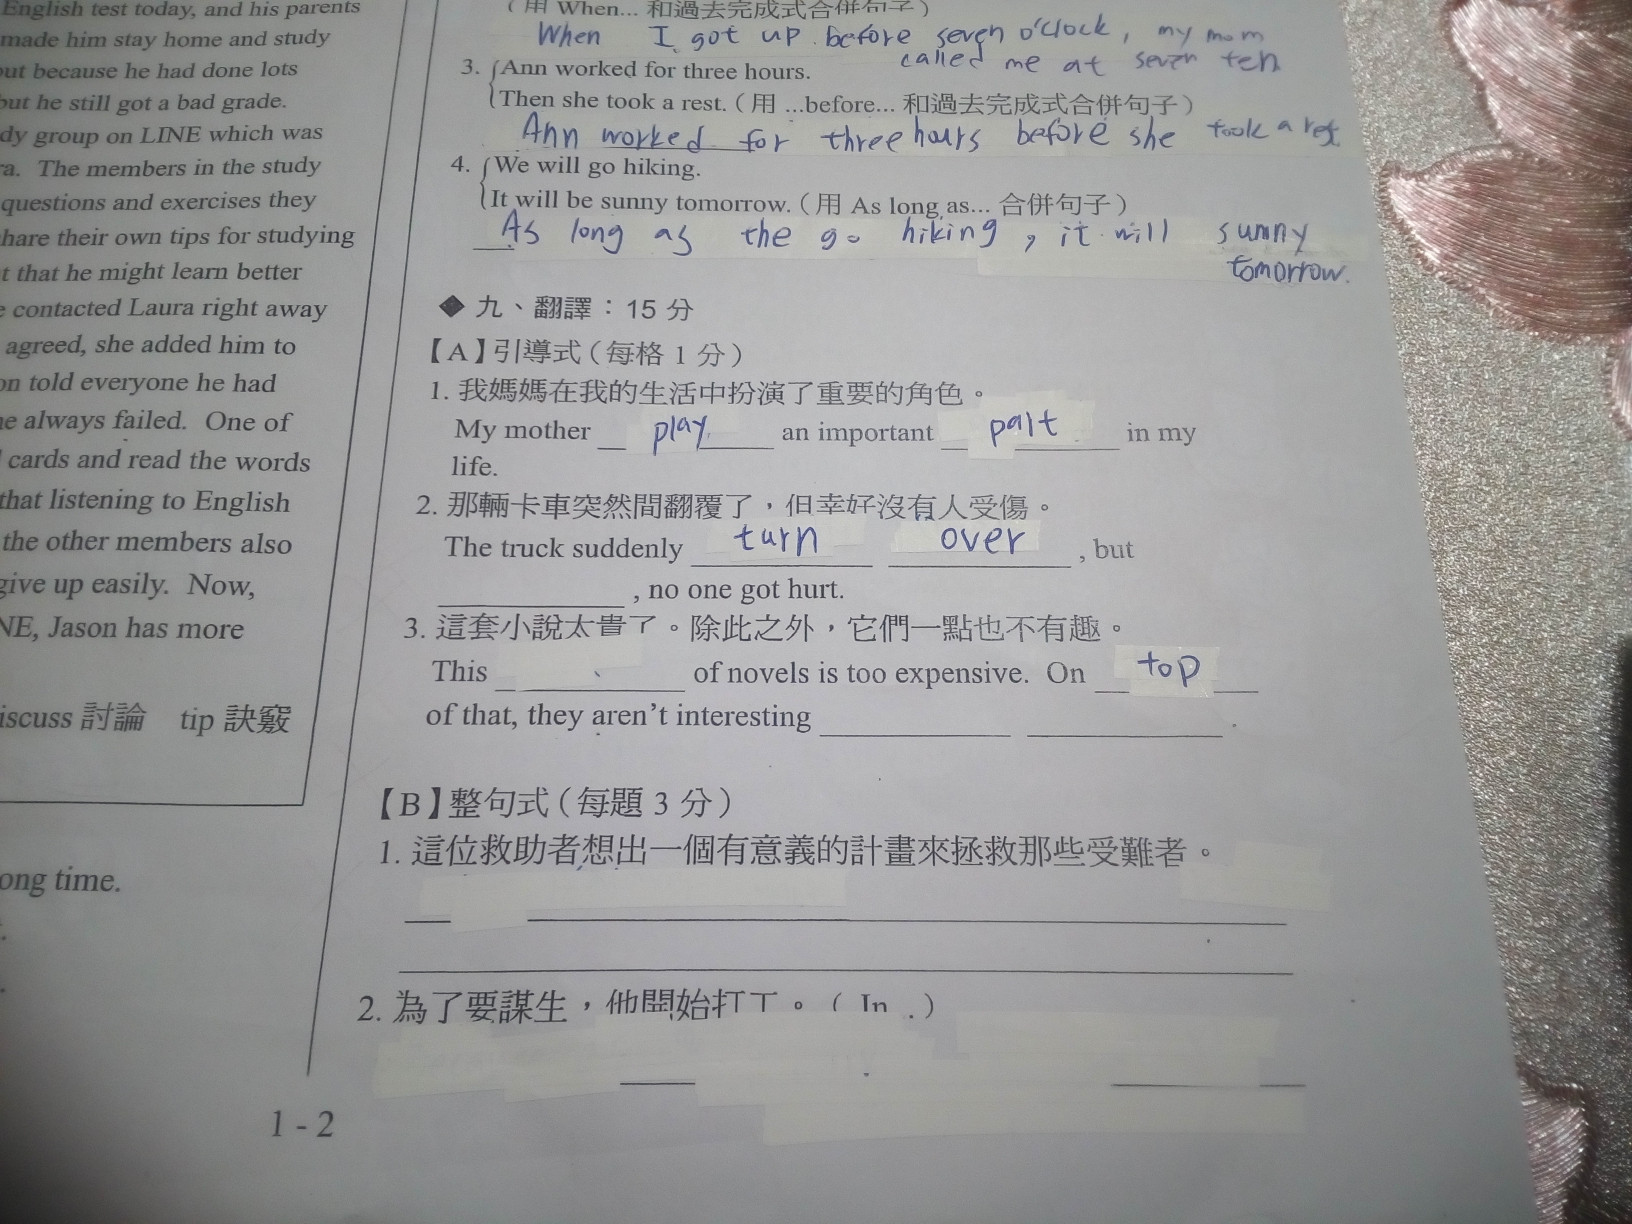 English test today, and his parents
made him stay home and study
but because he had done lots
but he still got a bad grade.
dy group on LINE which was
ra. The members in the study
questions and exercises they
hare their own tips for studying
t that he might learn better
e contacted Laura right away
agreed, she added him to
on told everyone he had
he always failed. One of
cards and read the words
that listening to English
the other members also
give up easily. Now,
NE, Jason has more
iscuss 討論 tip 訣竅
ong time.
1 - 2
(用 When... 和過去完成式合併句子)
When I got up before seven o'clock, my mom
called me at seven ten
3. Ann worked for three hours.
Then she took a rest. (用 ...before... 和過去完成式合併句子)
Ann worked for three hours before she took a rest.
4. We will go hiking.
It will be sunny tomorrow. (用 As long as... 合併句子)
As long as the go hiking, it will sunny
tomorrow.
◆ 九、翻譯:15 分
【A】引導式(每格 1 分)
1. 我媽媽在我的生活中扮演了重要的角色。
My mother play an important part in my
life.
2. 那輛卡車突然間翻覆了,但幸好沒有人受傷。
The truck suddenly turn over, but
, no one got hurt.
3. 這套小說太貴了。除此之外,它們一點也不有趣。
This of novels is too expensive. On top
of that, they aren't interesting .
【B】整句式(每題 3 分)
1. 這位救助者想出一個有意義的計畫來拯救那些受難者。
2. 為了要謀生,他開始打工。( In .)